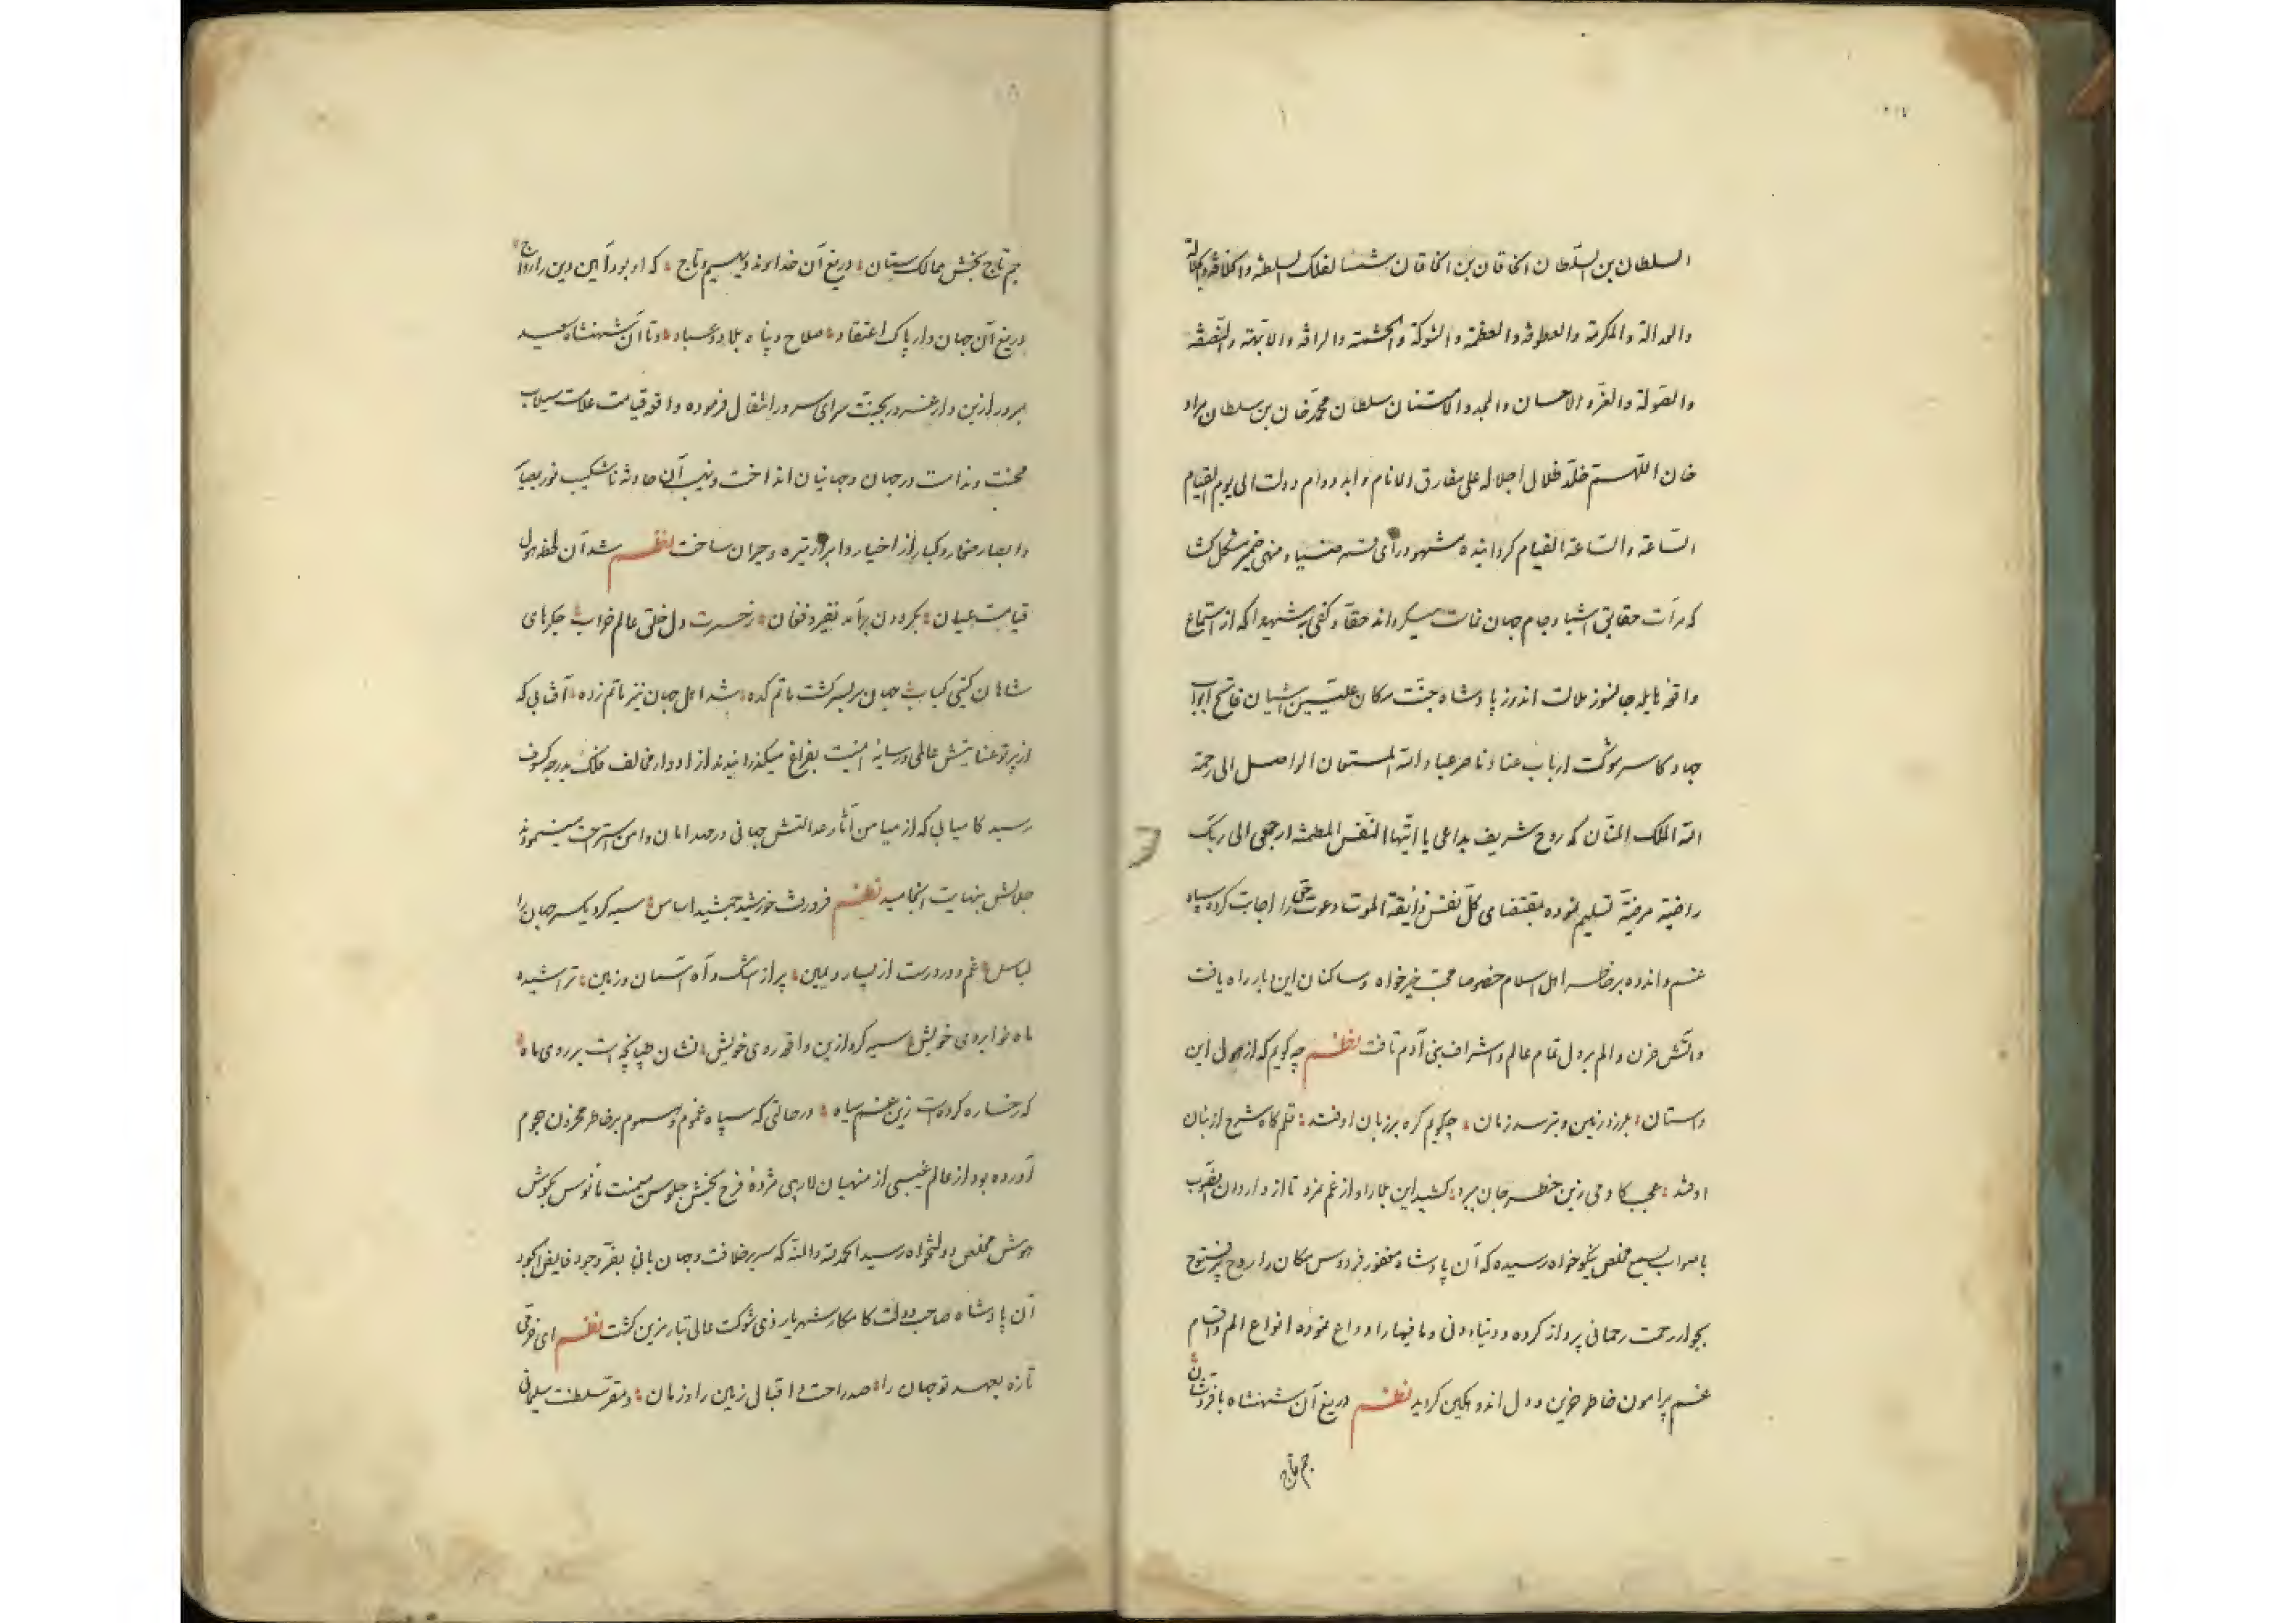 السلطان بن السلطان الخاقان بن الخاقان شمسا لفلک السلطنه والخلافه
والعدالة والمکرمة والعطوفه والعظمة والشوکة والحشمته والرافه والابهة والنصفه
والصولة والعز والاحسان والمجد والامتنان سلطان محمد خان بن سلطان مراد
خان اللهم خلد ظلال اجلاله علی مفارق الانام وابد دوام دولت الی یوم القیام
الساعة والساعة القیام کردانیده مشهود رأی ضمیر مشکل کشا
که مرآت حقایق اشیا و جام جهان نماست میکرداند حقا و کفی به شهیدا که از استماع
واقعه هایله جانسوز ملالت اندوز پادشاه جنت مکان علیین اشیان فاتح ابواب
جهاد کاسر شوکت ارباب عناد ناصر عباد الله المستعان الواصل الی رحمة
الله الملک المنان که روح شریف بداعی یا ایتها النفس المطمئنه ارجعی الی ربک
راضیة مرضیة تسلیم نموده بمقتضای کل نفس ذایقة الموت دعوت حق را اجابت کرده سپاه
غم و اندوه بر خاطر اهل اسلام خصوصا محب خیرخواه و ساکنان این دیار راه یافت
و اتش حزن و الم بر دل تمام عالم و اشراف بنی آدم تافت نظم چه کویم که از هول این
داستان بلرزد زمین و بترسد زمان چکویم کره بر زبان اوفتد قلم کاه شرح از بنان
اوفتد عجب کادمی زین خطر جان برد کشید این بلا را و از غم نمرد تا از واردان
باصواب بسمع مخلص نیکوخواه رسیده که آن پادشاه مغفور فردوس مکان را روح پر فتوح
بجوار رحمت رحمانی پرواز کرده و دنیاء دنی و مافیها را وداع نموده انواع الم و اقسام
غم پیرامون خاطر حزین و دل اندوهکین کردید نظم دریغ آن شهنشاه با فر و شان
جم تاج
جم تاج بخش ممالک ستان دریغ آن خداوند دیهیم و تاج که او بود آیین دین را رواج
دریغ آن جهاندار پاک اعتقاد صلاح و پناه بلاد و عباد و تا آن شهنشاه سعید
مبرور ازین دار غرور بجنت سرای سرور انتقال فرموده واقعه قیامت علامت سیلاب
محنت و ندامت در جهان و جهانیان انداخت و نهیب آن حادثه ناشکیب نور بصیا
و ابصار صغار و کبار را از اخیار و ابرار تیره و حیران ساخت نظم شد آن لحظه هول
قیامت عیان بکردون برآمد نفیر و فغان ز حسرت دل خلق عالم خراب جکرهای
شاهان کیتی کباب جهان سربسر کشت ماتم کده شد اهل جهان نیز ماتم زده آفتابی که
از پرتو عنایتش عالمی در سایه امنیت بفراغ میکذرانیدند از ادوار مخالف فلک بدرجه کسوف
رسید کامیابی که از میامن آثار عدالتش جهانی در مهد امان و امن استراحت مینمودند
جلالش بنهایت انجامید نظم فرو رفت خورشید جمشید اساس سیه کرد یکسر جهان را
لباس غم و درد رست از یسار و یمین پر از اشک و آه آسمان و زمین تراشیده
ماه نو ابروی خویش سیه کرد ازین واقعه روی خویش نشان طپانچه است بر روی ماه
که رخساره کرده است زین غم سیاه در حالتی که سپاه غموم و هموم بر خاطر محزون هجوم
آورده بود از عالم غیبی از منهیان لاریبی مژده فرح بخش جلوس میمنت مأنوس بکوش
هوش مخلص دولتخواه رسید الحمد لله والمنة که سریر خلافت و جهان بانی بفر وجود فایض الجود
آن پادشاه صاحب دولت کامکار شهریار ذی شوکت عالی تبار مزین کشت نظم ای خرمی
تازه بعهد تو جهان را صد راحت و اقبال زمین را و زمان و مقر سلطنت سلیمانی